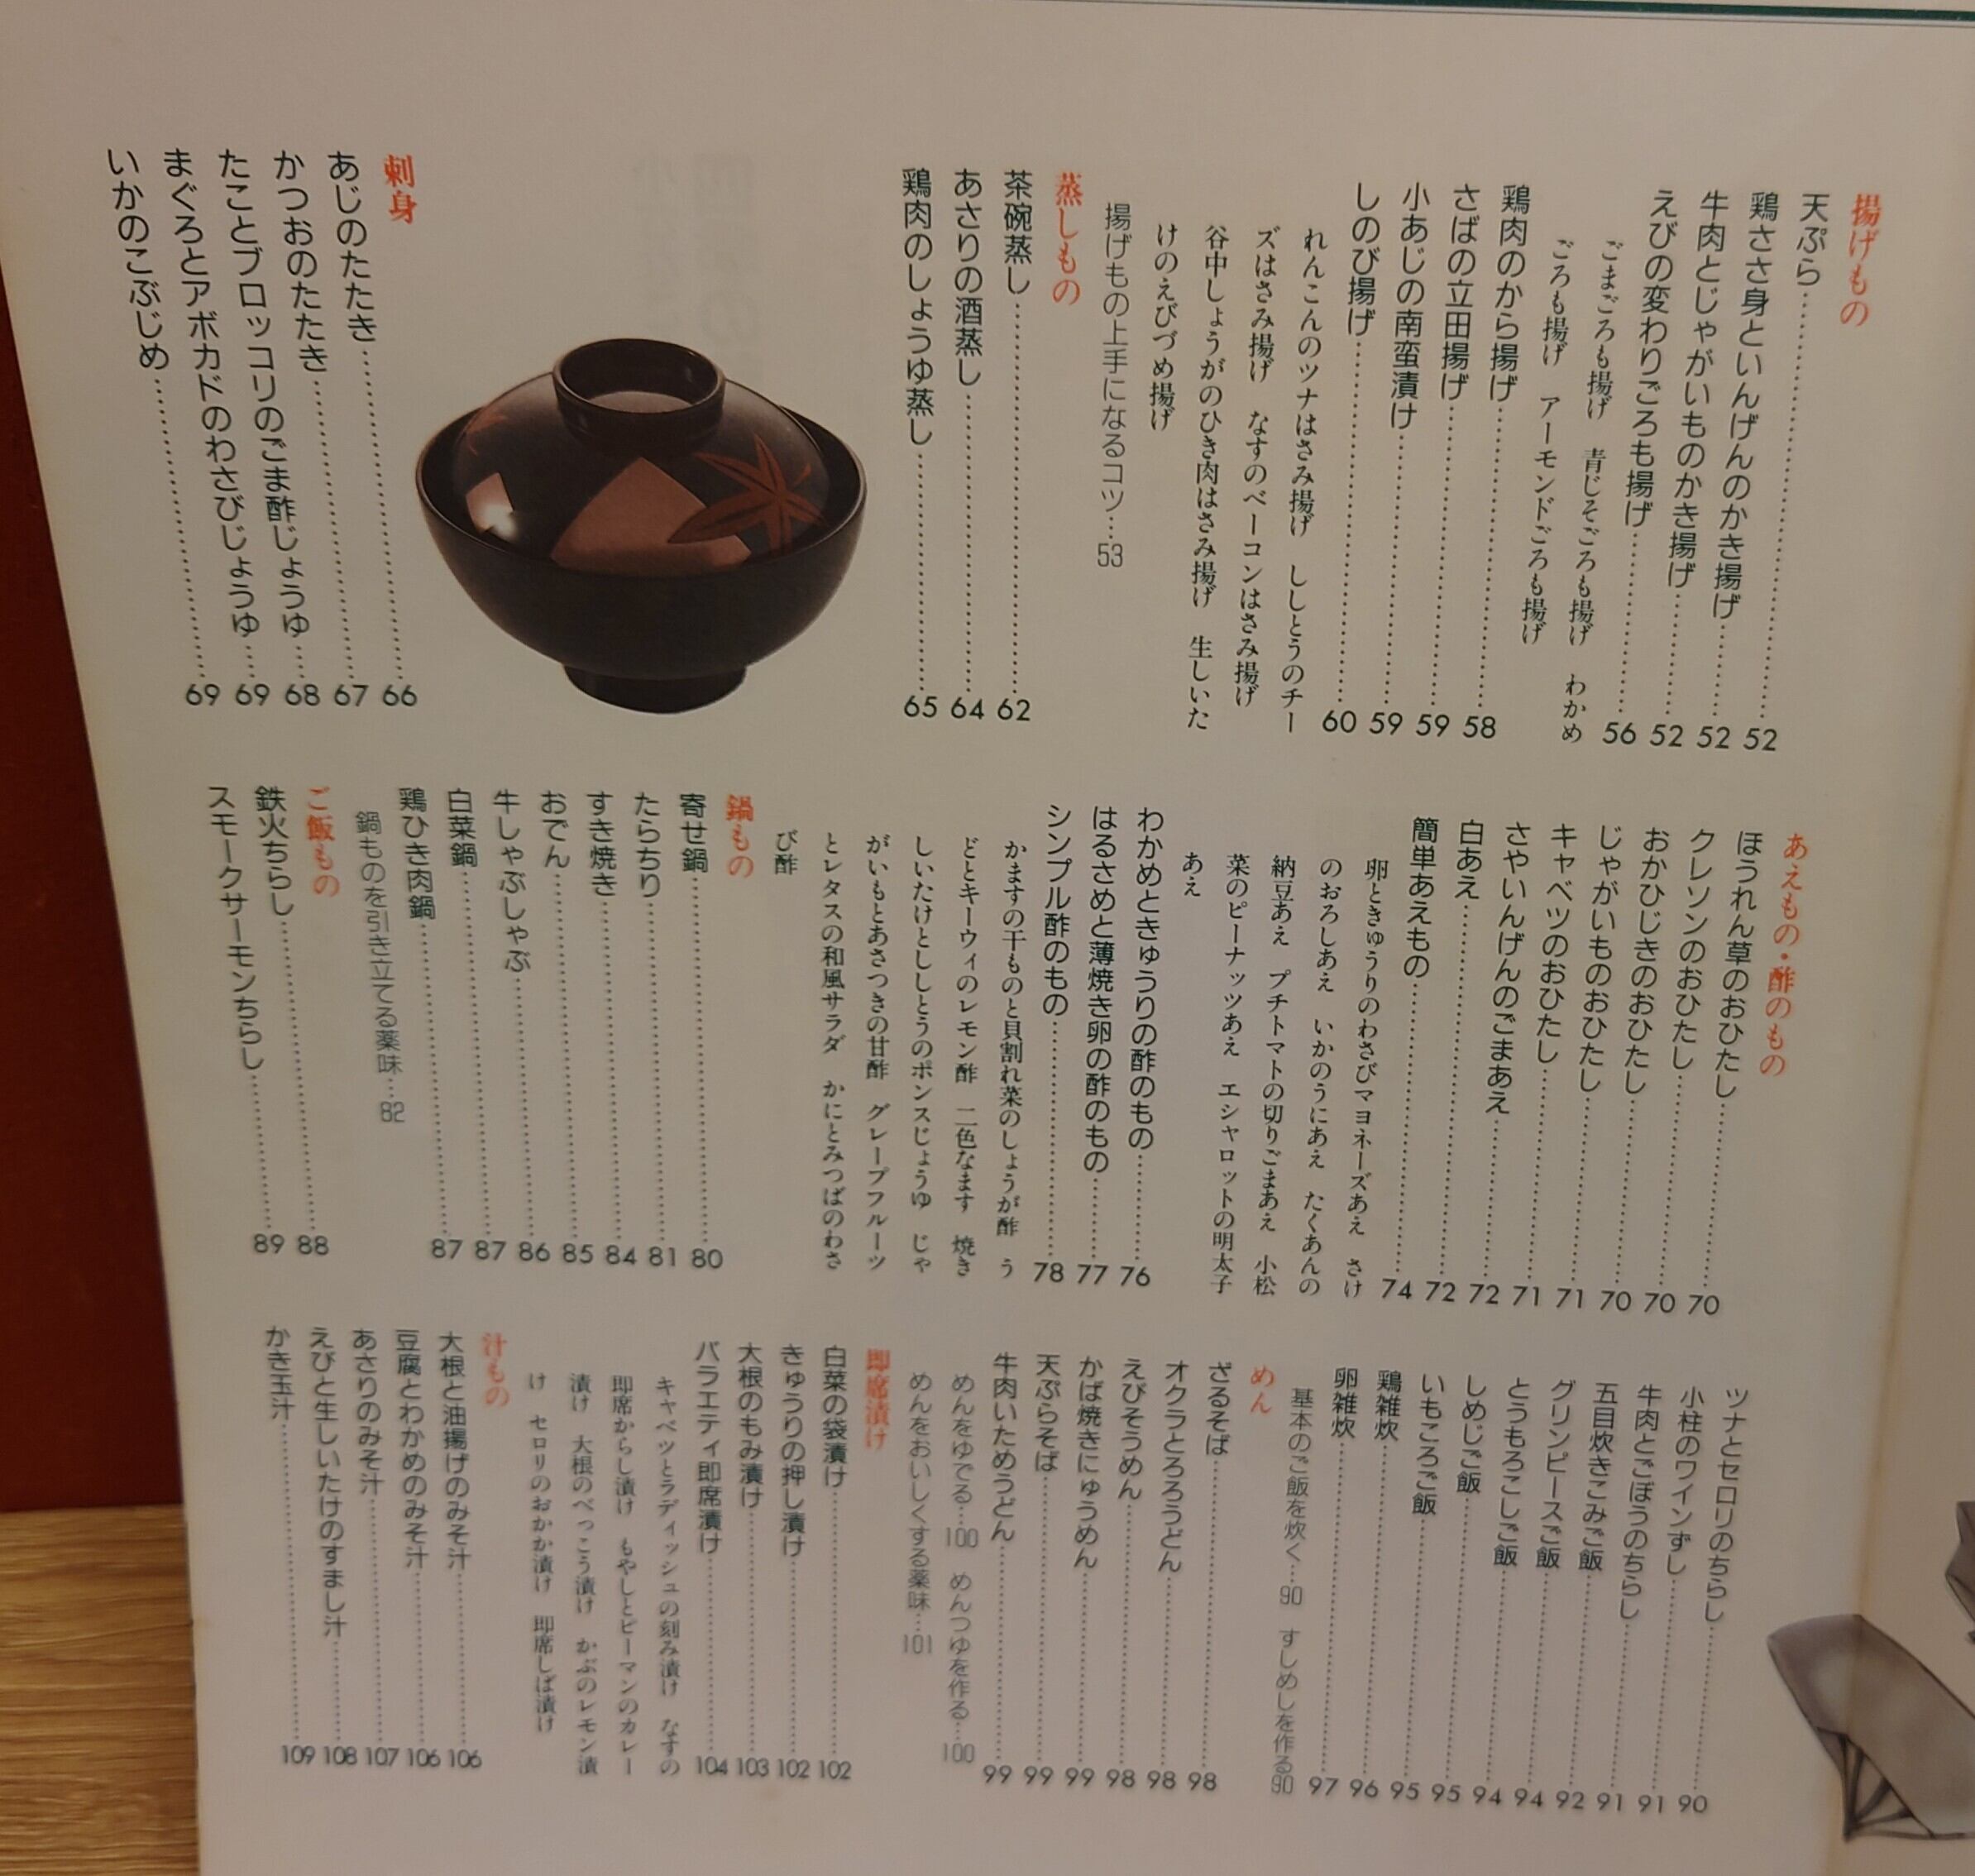 揚げもの
天ぷら……52
鶏ささ身といんげんのかき揚げ……52
牛肉とじゃがいものかき揚げ……52
えびの変わりごろも揚げ……56
ごまごろも揚げ　青じそごろも揚げ　わかめ
ごろも揚げ　アーモンドごろも揚げ
鶏肉のから揚げ……58
さばの立田揚げ……59
小あじの南蛮漬け……59
しのび揚げ……60
れんこんのツナはさみ揚げ　ししとうのチー
ズはさみ揚げ　なすのベーコンはさみ揚げ
谷中しょうがのひき肉はさみ揚げ　生しいた
けのえびづめ揚げ
揚げもの上手になるコツ…53
蒸しもの
茶碗蒸し……62
あさりの酒蒸し……64
鶏肉のしょうゆ蒸し……65
刺身
あじのたたき……66
かつおのたたき……67
たことブロッコリのごま酢じょうゆ……68
まぐろとアボカドのわさびじょうゆ……69
いかのこぶじめ……69
あえもの・酢のもの
ほうれん草のおひたし……70
クレソンのおひたし……70
おかひじきのおひたし……70
じゃがいものおひたし……71
キャベツのおひたし……71
さやいんげんのごまあえ……72
白あえ……72
簡単あえもの……74
卵ときゅうりのわさびマヨネーズあえ　さけ
のおろしあえ　いかのうにあえ　たくあんの
納豆あえ　プチトマトの切りごまあえ　小松
菜のピーナッツあえ　エシャロットの明太子
あえ
わかめときゅうりの酢のもの……76
はるさめと薄焼き卵の酢のもの……77
シンプル酢のもの……78
かますの干ものと貝割れ菜のしょうが酢　う
どとキーウィのレモン酢　二色なます　焼き
しいたけとししとうのポンスじょうゆ　じゃ
がいもとあさつきの甘酢　グレープフルーツ
とレタスの和風サラダ　かにとみつばのわさ
び酢
鍋もの
寄せ鍋……80
たらちり……81
すき焼き……84
おでん……85
牛しゃぶしゃぶ……86
白菜鍋……87
鶏ひき肉鍋……87
鍋ものを引き立てる薬味…82
ご飯もの
鉄火ちらし……88
スモークサーモンちらし……89
ツナとセロリのちらし……90
小柱のワインずし……91
牛肉とごぼうのちらし……91
五目炊きこみご飯……92
グリンピースご飯……94
とうもろこしご飯……94
しめじご飯……95
いもころご飯……95
鶏雑炊……96
卵雑炊……97
基本のご飯を炊く…90　すしめしを作る90
めん
ざるそば……98
オクラとろろうどん……98
えびそうめん……98
かば焼きにゅうめん……99
天ぷらそば……99
牛肉いためうどん……99
めんをゆでる…100　めんつゆを作る…100
めんをおいしくする薬味…101
即席漬け
白菜の袋漬け……102
きゅうりの押し漬け……102
大根のもみ漬け……103
バラエティ即席漬け……104
キャベツとラディッシュの刻み漬け　なすの
即席からし漬け　もやしとピーマンのカレー
漬け　大根のべっこう漬け　かぶのレモン漬
け　セロリのおかか漬け　即席しば漬け
汁もの
大根と油揚げのみそ汁……106
豆腐とわかめのみそ汁……106
あさりのみそ汁……107
えびと生しいたけのすまし汁……108
かき玉汁……109